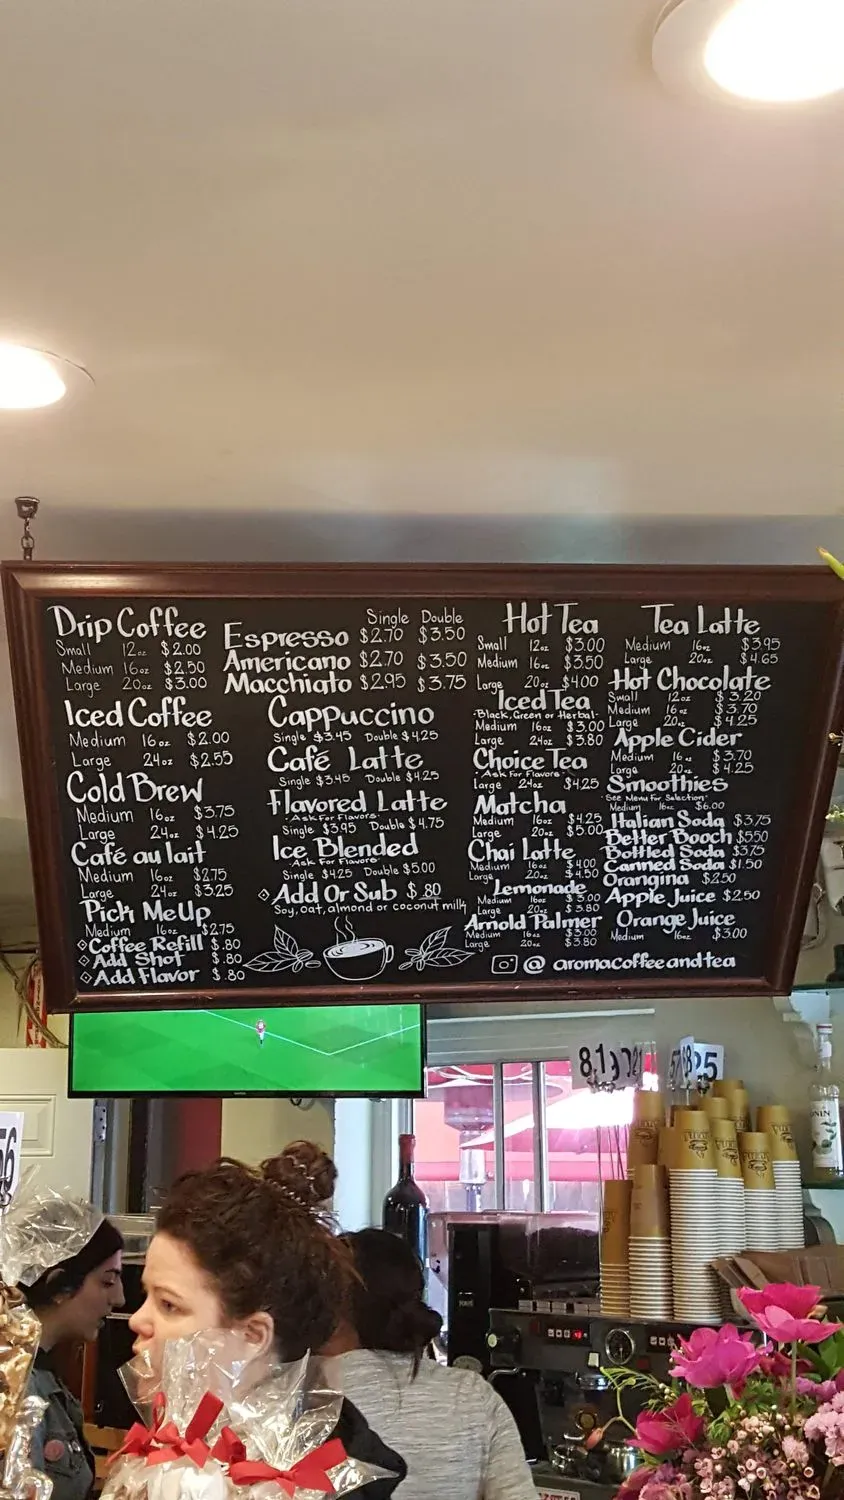 Drip Coffee
Small 12oz $2.00
Medium 16oz $2.50
Large 20oz $3.00
Iced Coffee
Medium 16oz $2.00
Large 24oz $2.55
Cold Brew
Medium 16oz $3.75
Large 24oz $4.25
Café au lait
Medium 16oz $2.75
Large 24oz $3.25
Pick Me Up
Medium 16oz $2.75
Coffee Refill $.80
Add Shot $.80
Add Flavor $.80
Single Double
Espresso $2.70 $3.50
Americano $2.70 $3.50
Macchiato $2.95 $3.75
Cappuccino
Single $3.45 Double $4.25
Café Latte
Single $3.45 Double $4.25
Flavored Latte
-Ask For Flavors-
Single $3.95 Double $4.75
Ice Blended
-Ask For Flavors-
Single $4.25 Double $5.00
Add Or Sub $.80
Soy, oat, almond or coconut milk
Hot Tea
Small 12oz $3.00
Medium 16oz $3.50
Large 20oz $4.00
Iced Tea
-Black, Green or Herbal-
Medium 16oz $3.00
Large 24oz $3.80
Choice Tea
-Ask For Flavors-
Large 24oz $4.25
Matcha
Medium 16oz $4.25
Large 20oz $5.00
Chai Latte
Medium 16oz $4.00
Large 20oz $4.50
Lemonade
Medium 16oz $3.00
Large 20oz $3.80
Arnold Palmer
Medium 16oz $3.00
Large 20oz $3.80
Tea Latte
Medium 16oz $3.95
Large 20oz $4.65
Hot Chocolate
Small 12oz $3.20
Medium 16oz $3.70
Large 20oz $4.25
Apple Cider
Medium 16oz $3.70
Large 20oz $4.25
Smoothies
-See Menu For Selection-
Medium 16oz $6.00
Italian Soda $3.75
Better Booch $5.50
Bottled Soda $3.75
Canned Soda $1.50
Orangina $2.50
Apple Juice $2.50
Orange Juice
Medium 16oz $3.00
@aromacoffeeandtea